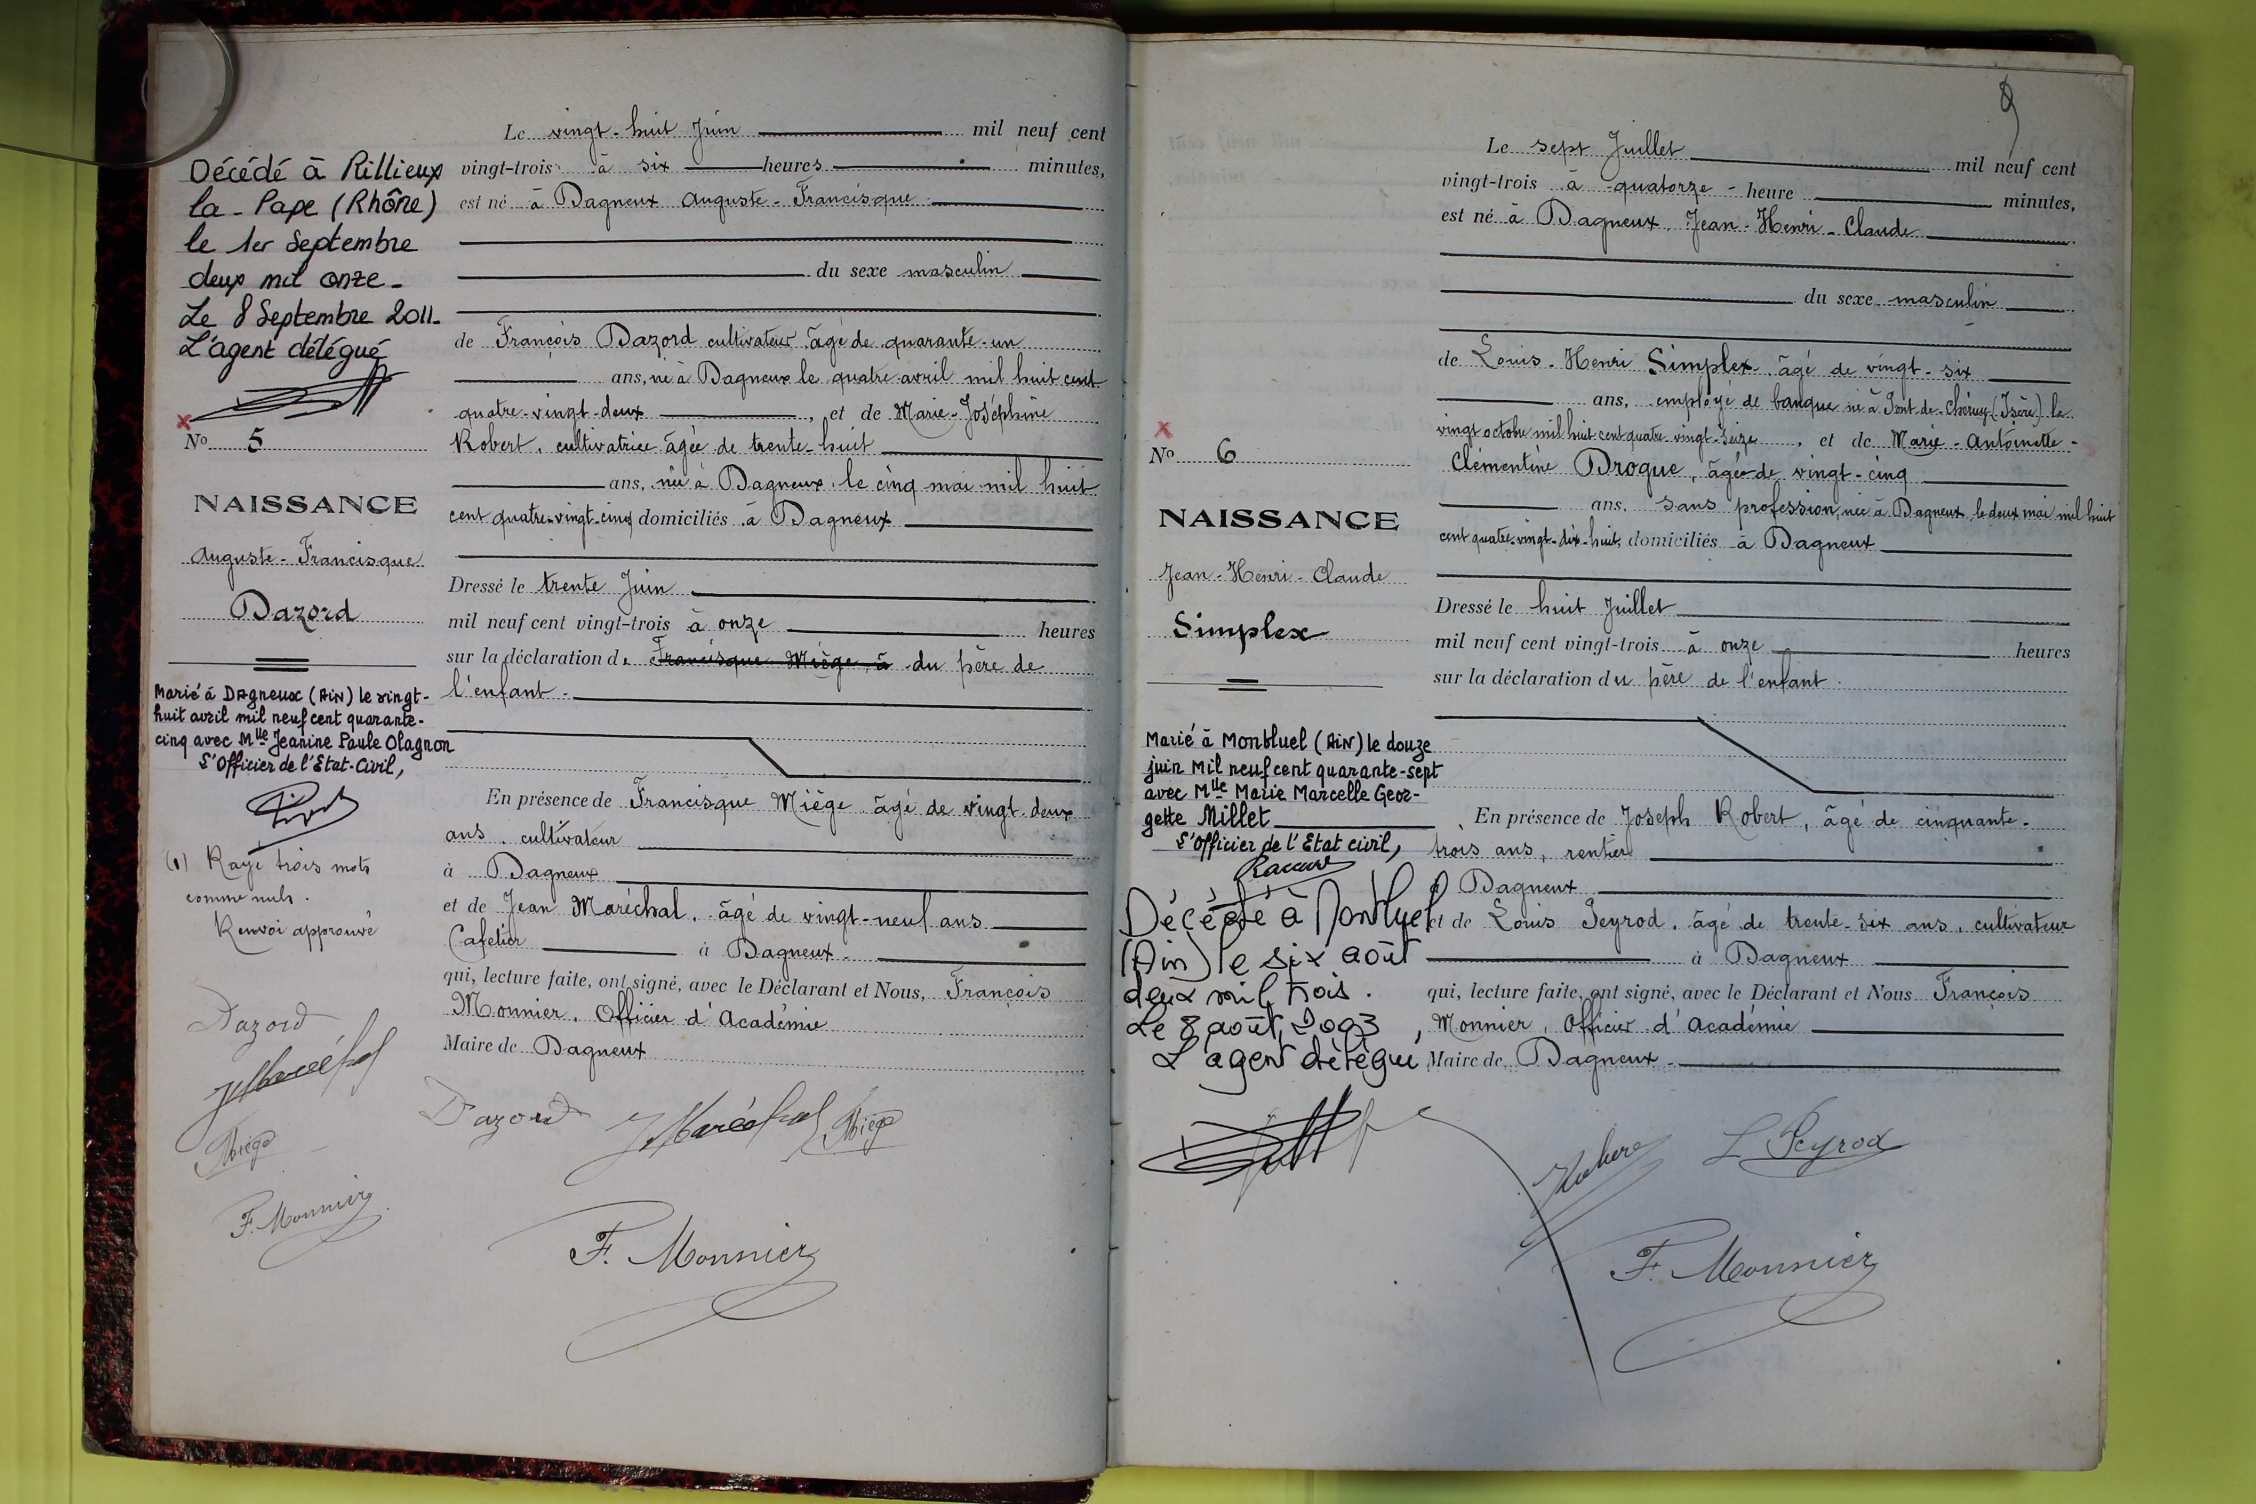 Décédé à Rillieux
la-Pape (Rhône)
le 1er Septembre
deux mil onze-
Le 8 Septembre 2011-
L'agent délégué
No 5
NAISSANCE
Auguste-Francisque
Dazord
Marié à Dagneux (Ain) le vingt-
huit avril mil neuf cent quarante-
cinq avec Mlle Jeanine Paule Olagnon
L'Officier de l'Etat-Civil,
(1) Rayé trois mots
comme nuls.
Renvoi approuvé
Dazord
JMaréchal
Miège
F. Monnier
Le vingt-huit Juin mil neuf cent
vingt-trois à six heures minutes,
est né à Dagneux Auguste-Francisque
du sexe masculin
de François Dazord cultivateur âgé de quarante-un
ans, né à Dagneux le quatre avril mil huit cent
quatre-vingt-deux, et de Marie-Joséphine
Robert, cultivatrice âgée de trente-huit
ans, née à Dagneux, le cinq mai mil huit
cent quatre-vingt-cinq domiciliés à Dagneux
Dressé le trente Juin
mil neuf cent vingt-trois à onze heures
sur la déclaration de Francisque Miège, à du père de
l'enfant.
En présence de Francisque Miège âgé de vingt deux
ans, cultivateur
à Dagneux
et de Jean Maréchal, âgé de vingt-neuf ans
Cafetier à Dagneux.
qui, lecture faite, ont signé, avec le Déclarant et Nous, François
Monnier, Officier d'Académie
Maire de Dagneux
Dazord JMaréchal Miège
F. Monnier
9
No 6
NAISSANCE
Jean-Henri-Claude
Simplex
Marié à Montluel (Ain) le douze
juin Mil neuf cent quarante-sept
avec Mlle Marie Marcelle Geor-
gette Millet
L'Officier de l'Etat civil,
Décédé à Montluel
(Ain) le six août
deux mil trois.
Le 8 août 2003,
L'agent délégué
Le sept Juillet mil neuf cent
vingt-trois à quatorze heure minutes,
est né à Dagneux, Jean-Henri-Claude
du sexe masculin
de Louis-Henri Simplex, âgé de vingt-six
ans, employé de banque né à Pont-de-Chéruy (Isère) le
vingt octobre mil huit cent quatre-vingt-seize, et de Marie-Antoinette-
Clémentine Drogue, âgée de vingt-cinq
ans, sans profession, née à Dagneux, le deux mai mil huit
cent quatre-vingt-dix-huit, domiciliés à Dagneux
Dressé le huit Juillet
mil neuf cent vingt-trois à onze heures
sur la déclaration du père de l'enfant.
En présence de Joseph Robert, âgé de cinquante-
trois ans, rentier
à Dagneux
et de Louis Peyrod, âgé de trente-six ans, cultivateur
à Dagneux
qui, lecture faite, ont signé, avec le Déclarant et Nous François
Monnier, Officier d'Académie
Maire de Dagneux
L Peyrod
F. Monnier